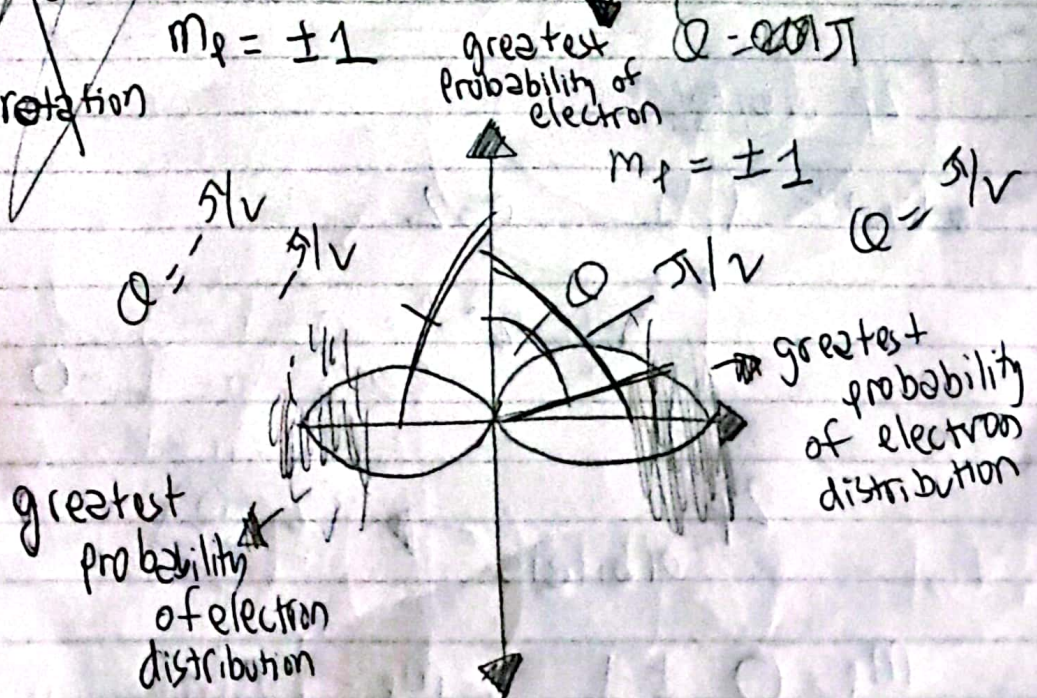 m_ℓ = ±1
greatest
probability of
electron
π
rotation
m_ℓ = ±1
θ = π/2
θ = π/2
π/2
θ
π/2
greatest
probability
of electron
distribution
greatest
probability
of electron
distribution